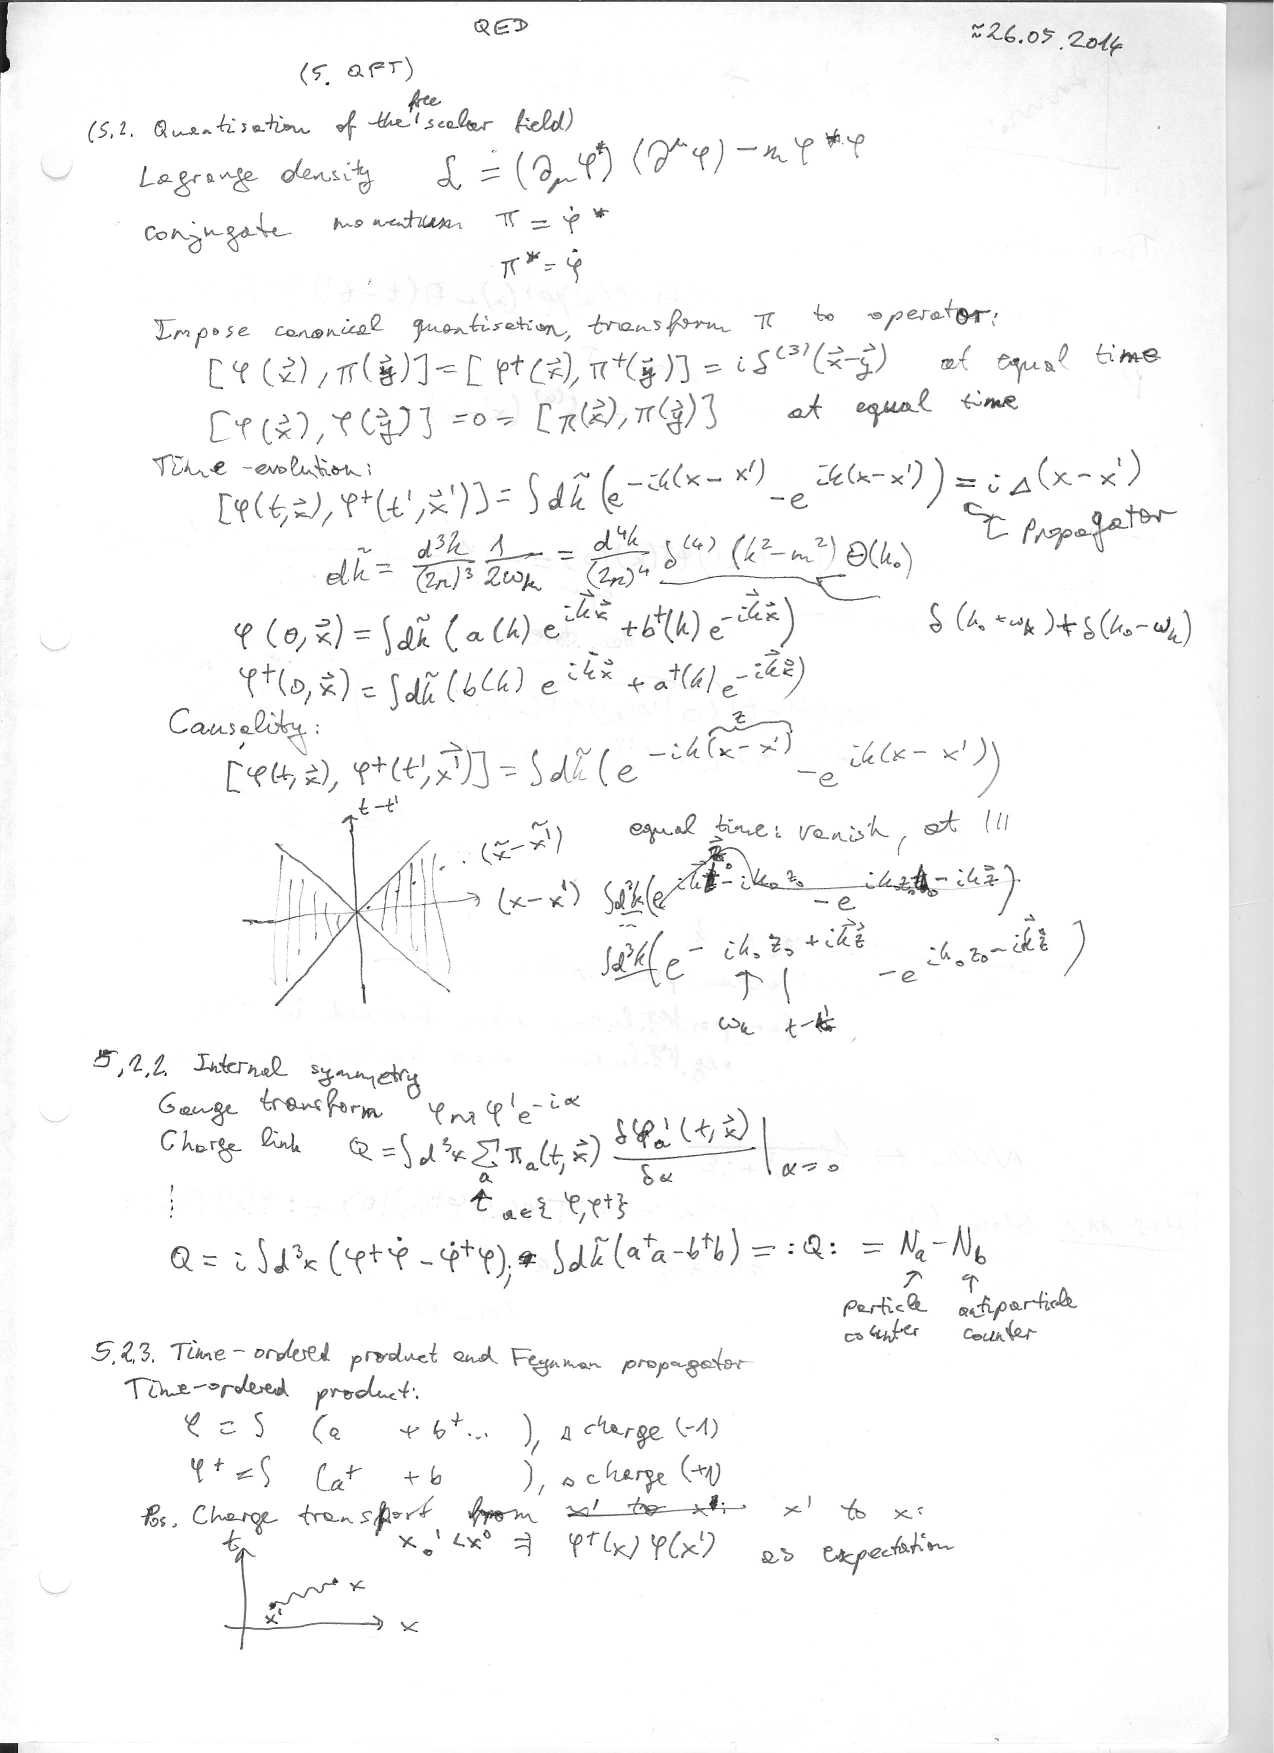 QED
≈26.05.2014
(5. QFT)
(5.2. Quantisation of the free scalar field)
Lagrange density ℒ = (∂_μ φ*) (∂^μ φ) − m φ*φ
conjugate momentum π = φ̇*
π* = φ̇
Impose canonical quantisation, transform π to operator:
[φ(x⃗), π(y⃗)] = [φ†(x⃗), π†(y⃗)] = i δ^(3)(x⃗−y⃗) at equal time
[φ(x⃗), φ(y⃗)] = 0 = [π(x⃗), π(y⃗)] at equal time
Time-evolution:
[φ(t,x⃗), φ†(t',x⃗')] = ∫dk̃ (e^{−ik(x−x')} − e^{ik(x−x')}) = i Δ(x−x')
Propagator
dk̃ = d³k/(2π)³ 1/2ω_k = d⁴k/(2π)⁴ δ^(4)(k²−m²) Θ(k₀)
δ(k₀+ω_k)+δ(k₀−ω_k)
φ(0,x⃗) = ∫dk̃ (a(k) e^{ik⃗x⃗} + b†(k) e^{−ik⃗x⃗})
φ†(0,x⃗) = ∫dk̃ (b(k) e^{ik⃗x⃗} + a†(k) e^{−ik⃗x⃗})
Causality:
z
[φ(t,x⃗), φ†(t',x⃗')] = ∫dk̃ (e^{−ik(x−x')} − e^{ik(x−x')})
t−t'
(x̃−x̃')
(x−x')
equal time: vanish, at
∫d³k (e^{−ik₀z₀+ik⃗z⃗} − e^{ik₀z₀−ik⃗z⃗})
ω_k t−t'
5.2.2. Internal symmetry
Gauge transform φ → φ'e^{−iα}
Charge link Q = ∫d³x Σ_a π_a(t,x⃗) δφ_a'(t,x⃗)/δα |_{α=0}
a∈{φ,φ†}
⋮
Q = i∫d³x (φ†φ̇ − φ̇†φ); ∫dk̃ (a†a−b†b) = :Q: = N_a−N_b
particle antiparticle
counter counter
5.2.3. Time-ordered product and Feynman propagator
Time-ordered product:
φ = ∫ (a + b†... ), Δ charge (−1)
φ† = ∫ (a† + b ), Δ charge (+1)
Pos. Charge transport from x' to x:
x₀' < x⁰ ⇒ φ†(x) φ(x') as expectation
t
x
x'
x